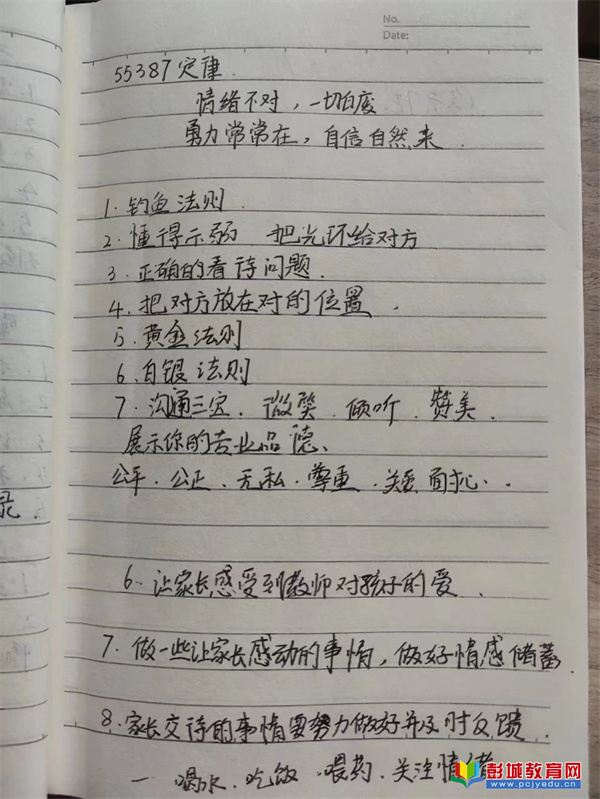 No.
Date:
55387定律.
情绪不对，一切白废
勇力常常在，自信自然来.
1. 钓鱼法则.
2. 懂得示弱 把光环给对方
3. 正确的看待问题.
4. 把对方放在对的位置.
5. 黄金法则
6. 白银法则
7. 沟通三宝. 微笑. 倾听. 赞美.
展示你的专业品德、
公平. 公正. 无私. 尊重. 关爱 耐心..
6. 让家长感受到教师对孩子的爱.
7. 做一些让家长感动的事情，做好情感储蓄.
8. 家长交待的事情要努力做好并及时反馈.
一 喝水. 吃饭. 喂药. 关注情绪
录.
彭城教育网
www.pcjyedu.cn